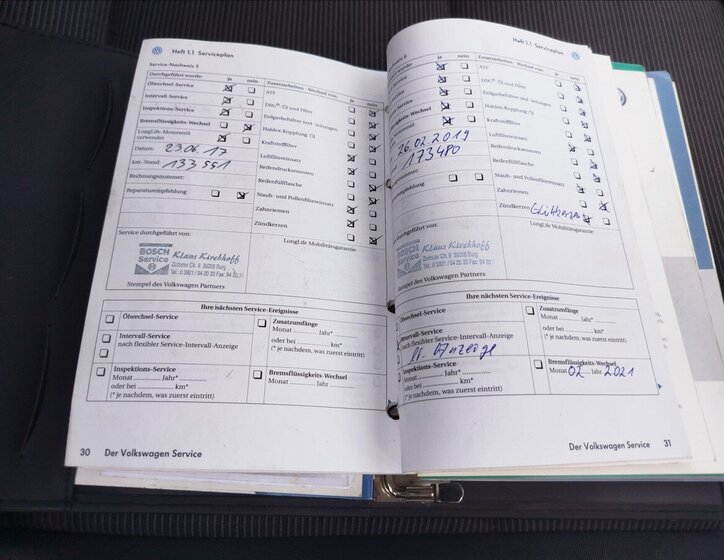 Heft 1.1 Serviceplan
Service-Nachweis 5
Durchgeführt wurde: ja nein
Ölwechsel-Service
Intervall-Service
Inspektions-Service
Bremsflüssigkeits-Wechsel
LongLife-Motorenöl
verwendet
Datum: 23.06.17
km-Stand: 133 551
Rechnungsnummer:
Reparaturempfehlung
Service durchgeführt von:
BOSCH
Service
Klaus Kirchhoff
Zerbster Ch. 9 39288 Burg
Stempel des Volkswagen Partners
Zusatzarbeiten - Wechsel von: ja nein
ATF
DSG®: Öl und Filter
Erdgasbehälter und -leitungen
Haldex-Kupplung: Öl
Kraftstofffilter
Luftfiltereinsatz
Reifendrucksensoren
Reifenfüllflasche
Staub- und Pollenfiltereinsatz
Zahnriemen
Zündkerzen
LongLife Mobilitätsgarantie:
Ihre nächsten Service-Ereignisse
Ölwechsel-Service
Intervall-Service
nach flexibler Service-Intervall-Anzeige
Inspektions-Service
Monat Jahr*
oder bei km*
(* je nachdem, was zuerst eintritt)
Zusatzumfänge
Monat Jahr*
oder bei km*
(* je nachdem, was zuerst eintritt)
Bremsflüssigkeits-Wechsel
Monat Jahr
30 Der Volkswagen Service
Heft 1.1 Serviceplan
wurde: ja nein
Service
Service
Service
Wechsel
26.02.2019
173480
Service durchgeführt von:
BOSCH
Service
Klaus Kirchhoff
Zerbster Ch. 9 39288 Burg
Stempel des Volkswagen Partners
Zusatzarbeiten - Wechsel von: ja nein
ATF
DSG®: Öl und Filter
Erdgasbehälter und -leitungen
Haldex-Kupplung: Öl
Kraftstofffilter
Luftfiltereinsatz
Reifendrucksensoren
Reifenfüllflasche
Staub- und Pollenfiltereinsatz
Zahnriemen
Zündkerzen
LongLife Mobilitätsgarantie:
Ihre nächsten Service-Ereignisse
Ölwechsel-Service
Intervall-Service
nach flexibler Service-Intervall-Anzeige
Anzeige
Inspektions-Service
Monat Jahr*
oder bei km*
(* je nachdem, was zuerst eintritt)
Zusatzumfänge
Monat Jahr*
oder bei km*
(* je nachdem, was zuerst eintritt)
Bremsflüssigkeits-Wechsel
Monat 02 Jahr 2021
Der Volkswagen Service 31